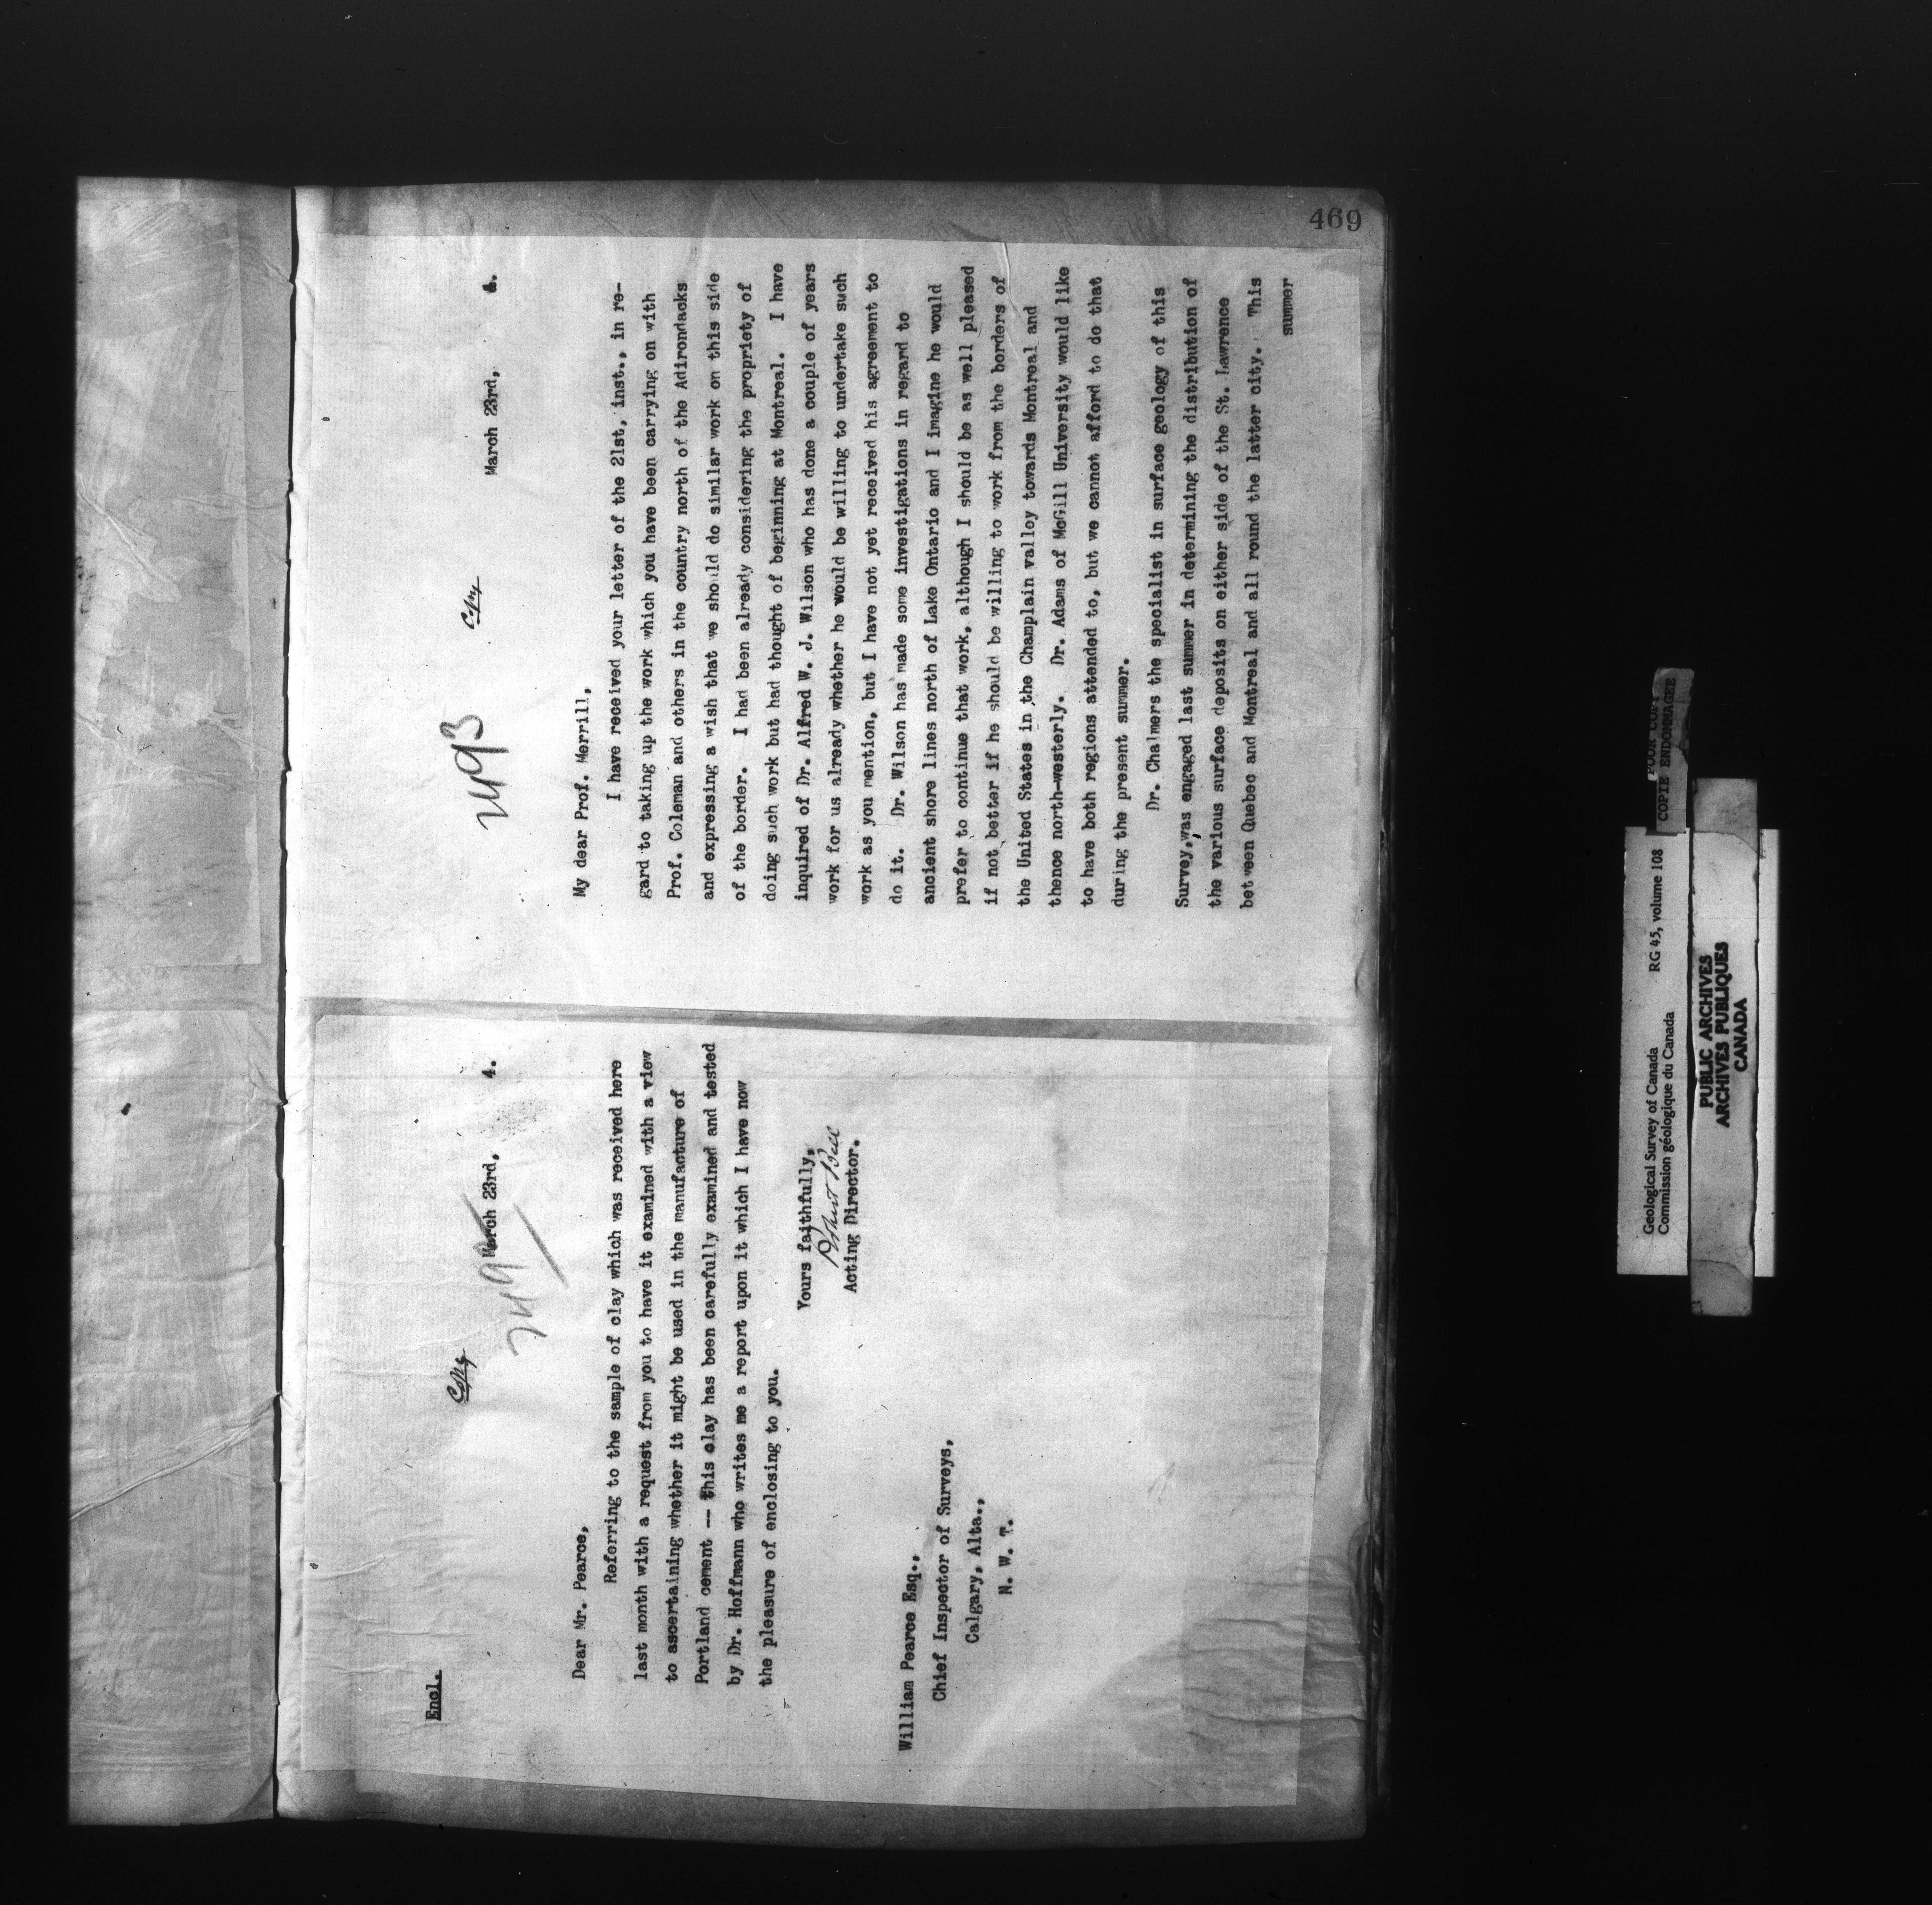 Encl.
Copy
2492
March 23rd, 4.
Dear Mr. Pearce,
Referring to the sample of clay which was received here
last month with a request from you to have it examined with a view
to ascertaining whether it might be used in the manufacture of
Portland cement -- this clay has been carefully examined and tested
by Dr. Hoffmann who writes me a report upon it which I have now
the pleasure of enclosing to you.
Yours faithfully,
Robert Bell
Acting Director.
William Pearce Esq.,
Chief Inspector of Surveys,
Calgary, Alta.,
N. W. T.
469
Copy
2493
March 23rd, 4.
My dear Prof. Merrill,
I have received your letter of the 21st, inst., in re-
gard to taking up the work which you have been carrying on with
Prof. Coleman and others in the country north of the Adirondacks
and expressing a wish that we should do similar work on this side
of the border. I had been already considering the propriety of
doing such work but had thought of beginning at Montreal. I have
inquired of Dr. Alfred W. J. Wilson who has done a couple of years
work for us already whether he would be willing to undertake such
work as you mention, but I have not yet received his agreement to
do it. Dr. Wilson has made some investigations in regard to
ancient shore lines north of Lake Ontario and I imagine he would
prefer to continue that work, although I should be as well pleased
if not better if he should be willing to work from the borders of
the United States in the Champlain valley towards Montreal and
thence north-westerly. Dr. Adams of McGill University would like
to have both regions attended to, but we cannot afford to do that
during the present summer.
Dr. Chalmers the specialist in surface geology of this
Survey, was engaged last summer in determining the distribution of
the various surface deposits on either side of the St. Lawrence
between Quebec and Montreal and all round the latter city. This
summer
Geological Survey of Canada RG 45, volume 108
Commission géologique du Canada
POOR COPY
COPIE ENDOMMAGEE
PUBLIC ARCHIVES
ARCHIVES PUBLIQUES
CANADA